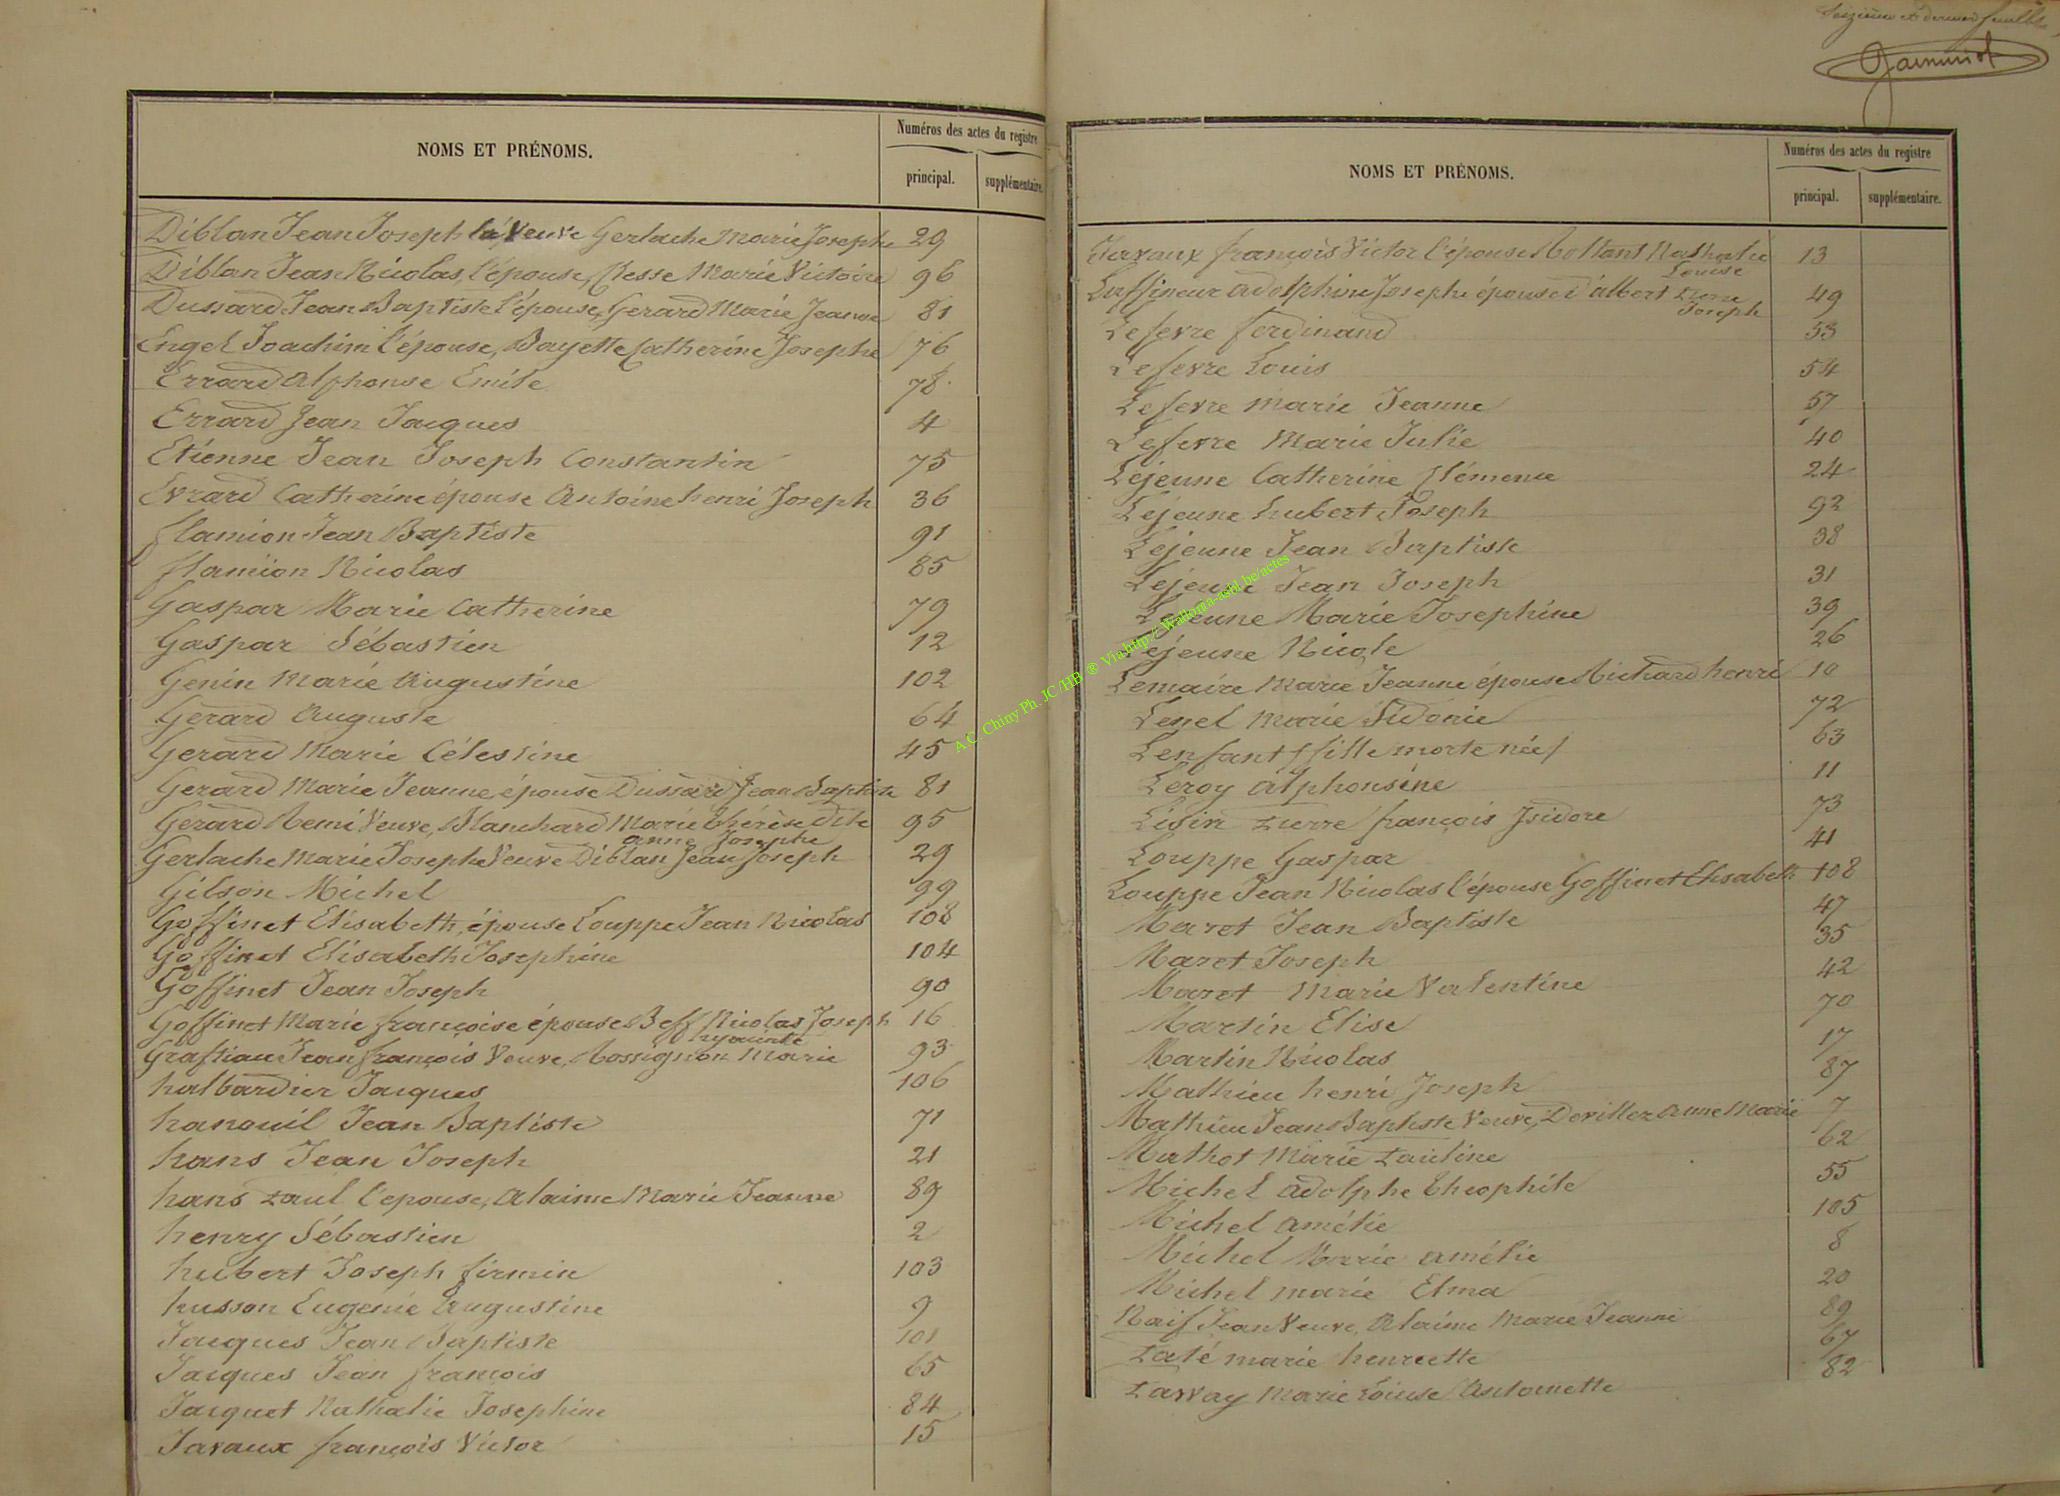 NOMS ET PRÉNOMS.
Numéros des actes du registre
principal.
supplémentaire.
Diblan Jean Joseph la Veuve Gerlache Marie Josephe 29
Diblan Jean Nicolas, l'épouse, Marie Victoire 96
Dussard Jean Baptiste l'épouse, Gerard Marie Jeanne 81
Engel Joachim l'épouse, Bayette Catherine Josephe 76
Errard Alphonse Emile 78
Errard Jean Jacques 4
Etienne Jean Joseph Constantin 75
Evrard Catherine épouse Antoine henri Joseph 36
flamion Jean Baptiste 91
flamion Nicolas 85
Gaspar Marie Catherine 79
Gaspar Sébastien 12
Genin Marie Augustine 102
Gerard Auguste 64
Gerard Marie Célestine 45
Gerard Marie Jeanne, épouse Dussard Jean Baptiste 81
Gerard Remi Veuve, Blanchard Marie thérèse dite 95
anne Josephe
Gerlache Marie Josephe Veuve Diblan Jean Joseph 29
Gilson Michel 99
Goffinet Elisabeth, épouse Louppe Jean Nicolas 108
Goffinet Elisabeth Josephine 104
Goffinet Jean Joseph 90
Goffinet Marie françoise épouse Beff Nicolas Joseph 16
hyacinte
Jean françois Veuve, Rossignon Marie 93
halbardier Jacques 106
hanouil Jean Baptiste 71
hans Jean Joseph 21
hans Paul l'epouse, Alaime Marie Jeanne 89
henry Sébastien 2
hubert Joseph firmin 103
husson Eugenie Augustine 9
Jacques Jean Baptiste 101
Jacques Jean françois 65
Jacquet Nathalie Josephine 84
Javaux françois Victor 15
Seizième et dernier feuillet
NOMS ET PRÉNOMS.
Numéros des actes du registre
principal.
supplémentaire.
Javaux françois Victor l'épouse Rollant Nathalie 13
Louise
Laffineur adolphine Josephe épouse d'albert Pierre 49
Joseph
Lefevre ferdinand 53
Lefevre Louis 54
Lefevre marie Jeanne 57
Lefevre Marie Julie 40
Lejeune Catherine Clémence 24
Lejeune hubert Joseph 92
Lejeune Jean Baptiste 38
Lejeune Jean Joseph 31
Lejeune Marie Josephine 39
Lejeune Nicole 26
Lemaire Marie Jeanne épouse Richard henri 10
Lenel marie Sidonie 72
Lenfant (fille morte née) 63
Leroy alphonsine 11
Ligin Pierre françois Isidore 73
Louppe Gaspar 41
Louppe Jean Nicolas l'épouse Goffinet Elisabeth 108
Maret Jean Baptiste 47
Maret Joseph 35
Maret Marie Valentine 42
Martin Elise 70
Martin Nicolas 17
Mathieu henri Joseph 87
Mathieu Jean Baptiste Veuve, Deviller anne Marie 7
Mathot Marie Pauline 62
Michel Adolphe théophile 55
Michel amélie 105
Michel Marie amélie 8
Michel marie Elma 20
Naif Jean Veuve, Alaime Marie Jeanne 89
Palé marie henriette 67
Parvay Marie Louise Antoinette 82
A.C. Chiny Ph. JC /HB ® Via http:// Wallonia-asbl.be/actes